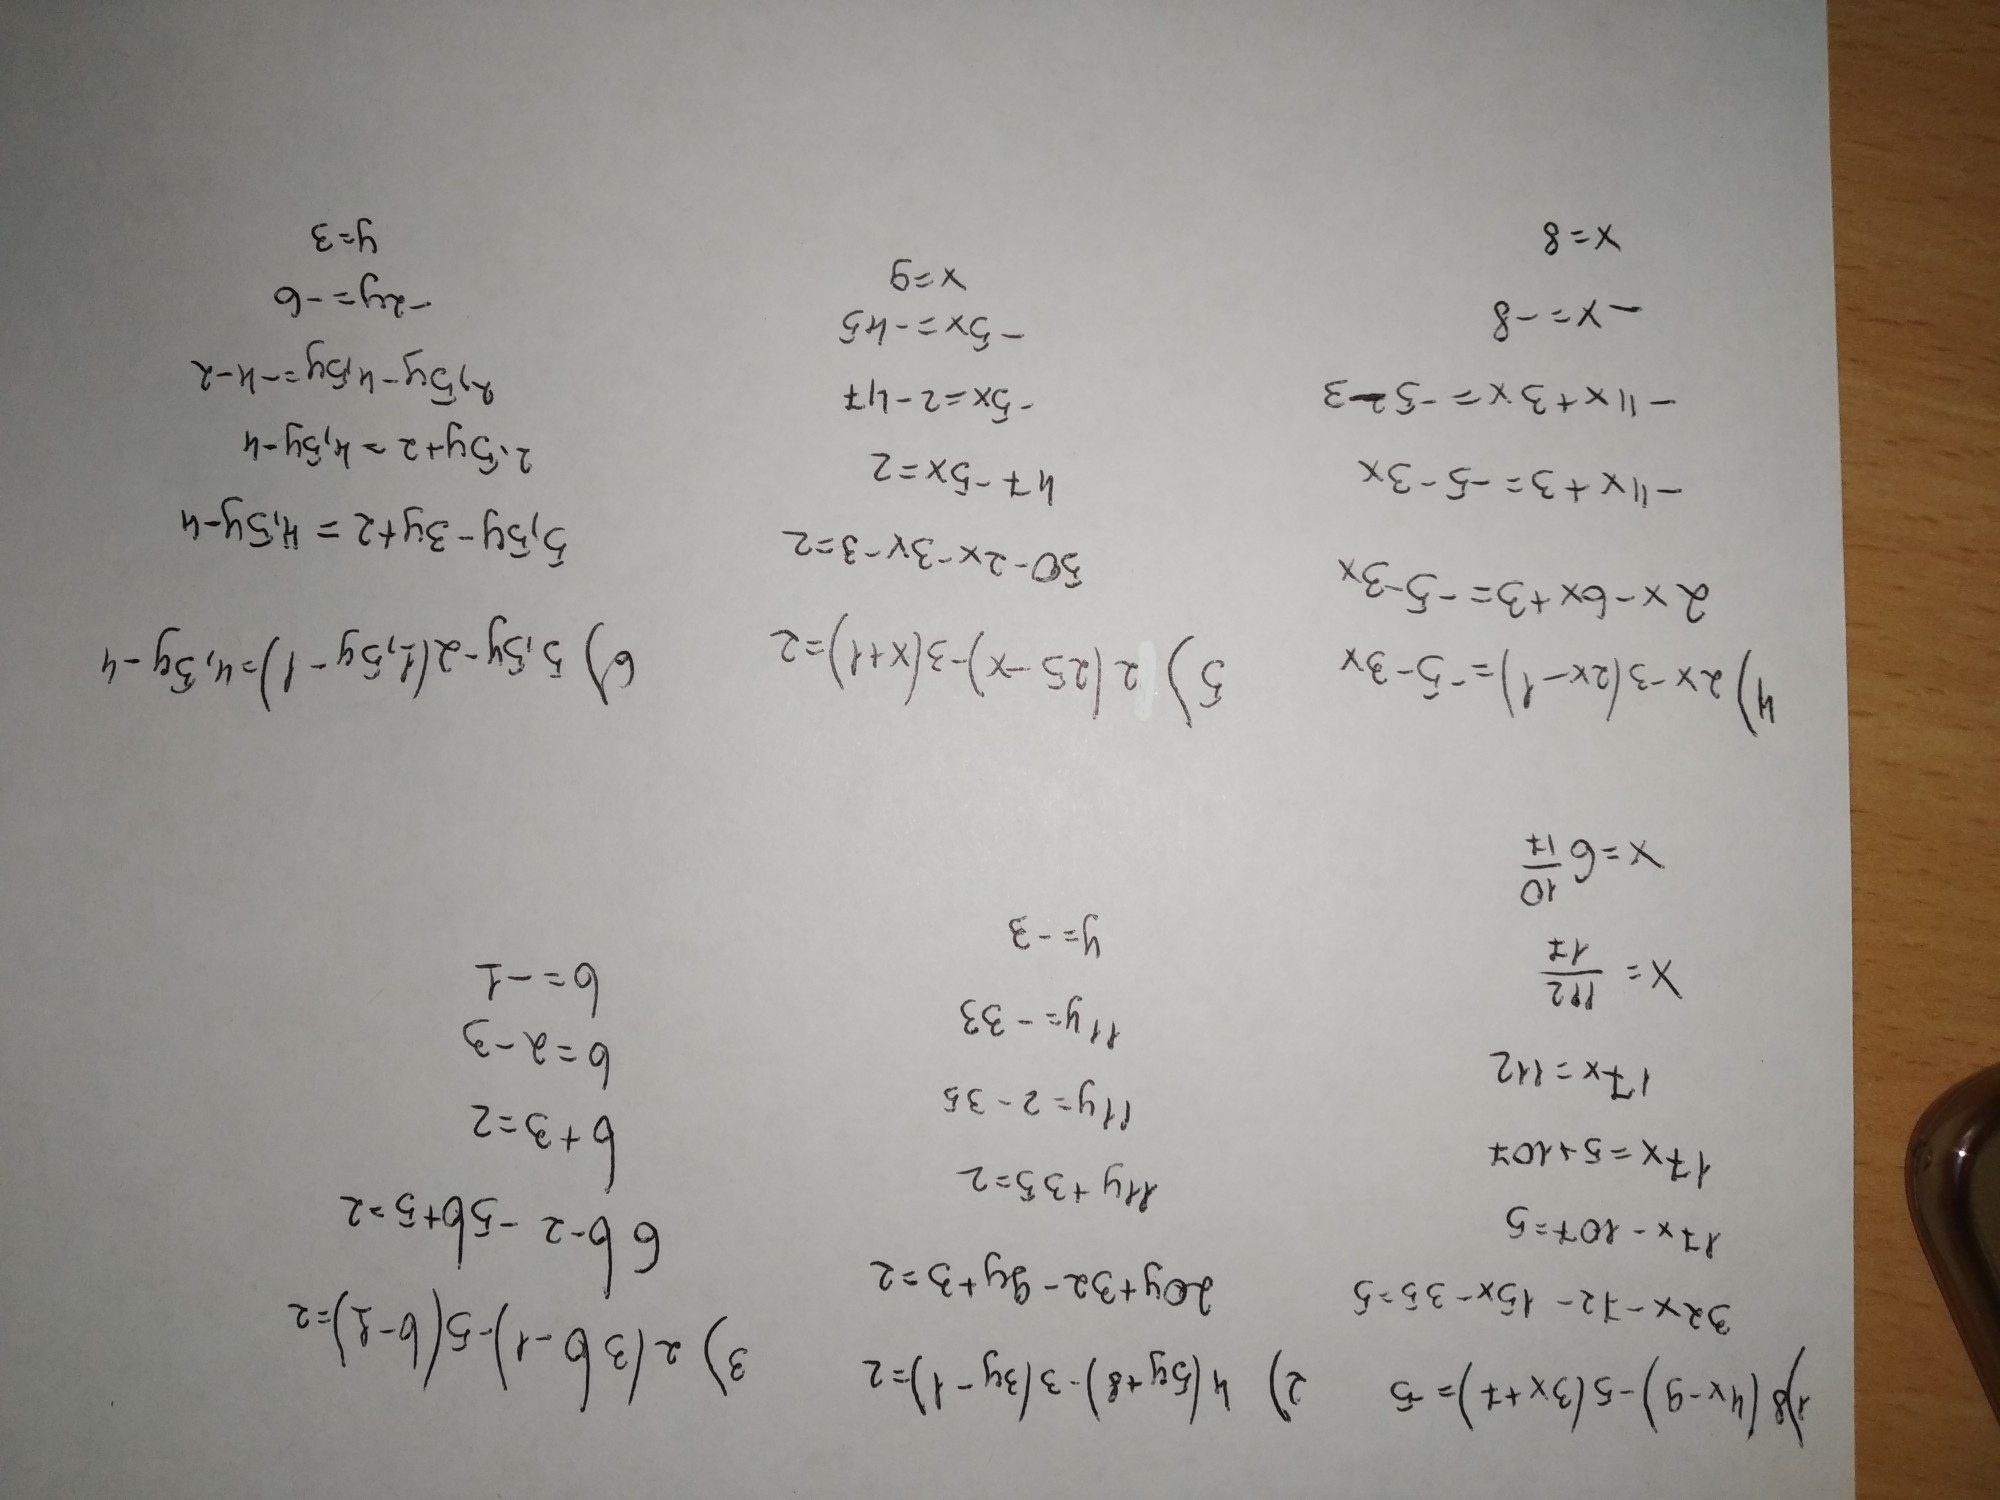 1) 8(4x-9)-5(3x+7)=5
32x-72-15x-35=5
17x-107=5
17x=5+107
17x=112
x=112/17
x=6 10/17
2) 4(5y+8)-3(3y-1)=2
20y+32-9y+3=2
11y+35=2
11y=2-35
11y=-33
y=-3
3) 2(3b-1)-5(b-1)=2
6b-2-5b+5=2
b+3=2
b=2-3
b=-1
4) 2x-3(2x-1)=-5-3x
2x-6x+3=-5-3x
-4x+3=-5-3x
-4x+3x=-5-3
-x=-8
x=8
5) 2(25-x)-3(x+1)=2
50-2x-3x-3=2
47-5x=2
-5x=2-47
-5x=-45
x=9
6) 5,5y-2(1,5y-1)=4,5y-4
5,5y-3y+2=4,5y-4
2,5y+2=4,5y-4
2,5y-4,5y=-4-2
-2y=-6
y=3